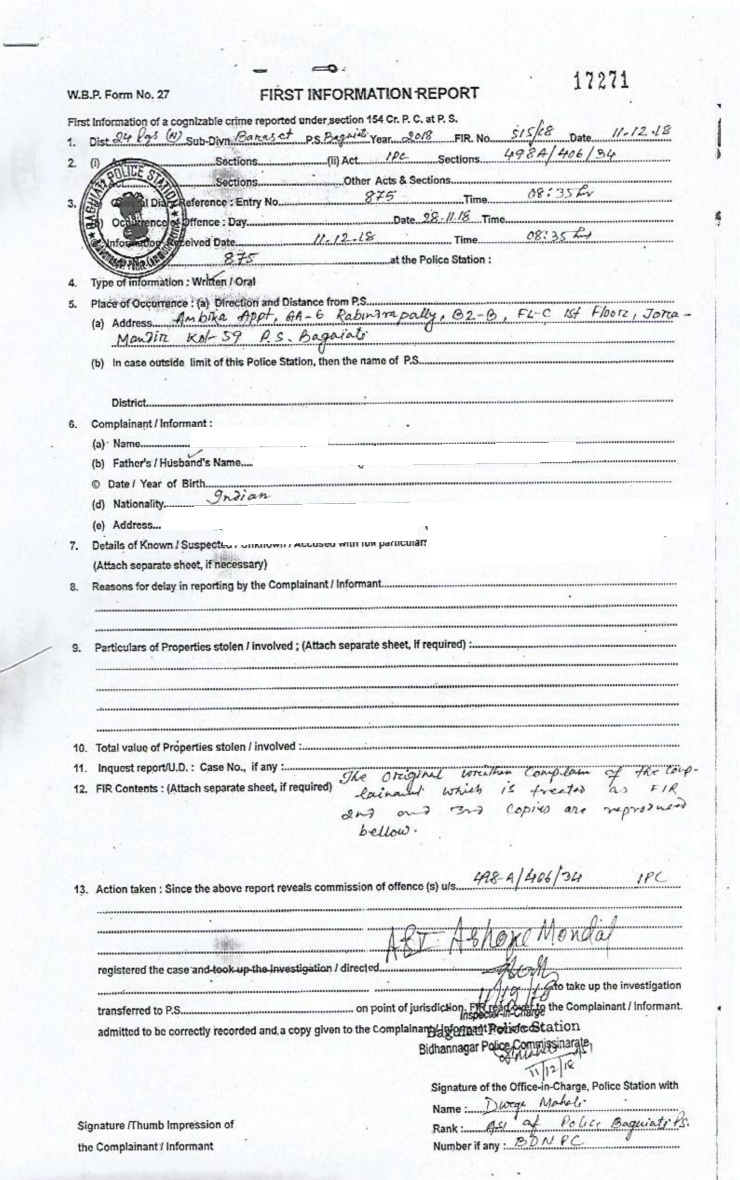 17271
W.B.P. Form No. 27 FIRST INFORMATION REPORT
First Information of a cognizable crime reported under section 154 Cr. P. C. at P. S.
1. Dist 24 Pgs (N) Sub-Divn. Baraset P.S. Baguiati Year 2018 FIR. No 515/18 Date 11-12-18
2. (i) Sections (ii) Act IPC Sections 498A/406/34
Sections Other Acts & Sections
3. Diary Reference : Entry No. 875 Time 08:35 hr
Occurrence of Offence : Day Date 28-11-18 Time
Information Received Date 11-12-18 Time 08:35 hrs
875 at the Police Station :
BAGUIATI POLICE STATION
4. Type of information : Written / Oral
5. Place of Occurrence : (a) Direction and Distance from P.S.
(a) Address Ambika Appt, GA-6 Rabindrapally, B2-B, FL-C 1st Floor, Jora-
Mandir Kol-59 P.S. Baguiati
(b) In case outside limit of this Police Station, then the name of P.S.
District
6. Complainant / Informant :
(a) Name
(b) Father's / Husband's Name
© Date / Year of Birth
(d) Nationality Indian
(e) Address
7. Details of Known / Suspected / Unknown / Accused with full particular
(Attach separate sheet, if necessary)
8. Reasons for delay in reporting by the Complainant / Informant
9. Particulars of Properties stolen / involved ; (Attach separate sheet, if required) :
10. Total value of Properties stolen / involved :
11. Inquest report/U.D. : Case No., if any :
12. FIR Contents : (Attach separate sheet, if required) The original written Complain of the comp-
lainant which is treated as FIR
2nd and 3rd copies are reproduced
bellow.
13. Action taken : Since the above report reveals commission of offence (s) u/s. 498-A/406/34 IPC
ASI Ashoke Mondal
registered the case and took up the Investigation / directed
to take up the investigation
transferred to P.S. on point of jurisdiction. FIR read over to the Complainant / Informant.
Inspector-in-Charge
admitted to be correctly recorded and a copy given to the Complainant / Informant
Baguiati Police Station
Bidhannagar Police Commissinarate
11/12/18
Signature of the Office-in-Charge, Police Station with
Name : Durga Mahali
Signature /Thumb Impression of
Rank : ASI of Police Baguiati Ps.
the Complainant / Informant
Number if any : BDNPC